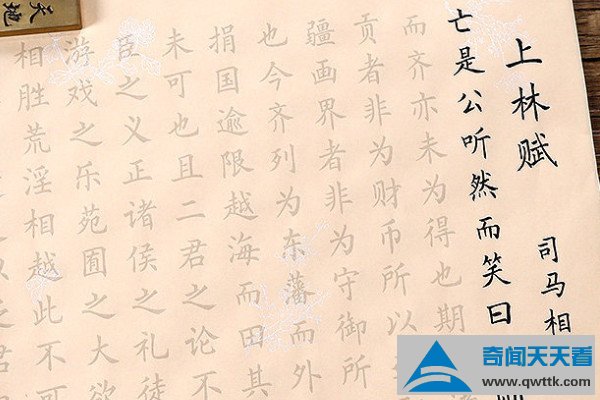 上林赋
司马相
亡是公听然而笑曰
而齐亦未为得也期
贡者非为财币所以
疆画界者非为守御所
也今齐列为东藩而外
捐国逾限越海而田其
未可也且二君之论不
臣之义正诸侯之礼徒
游戏之乐苑囿之大欲
相胜荒淫相越此不可
天地
奇闻天天看
www.qwttk.com